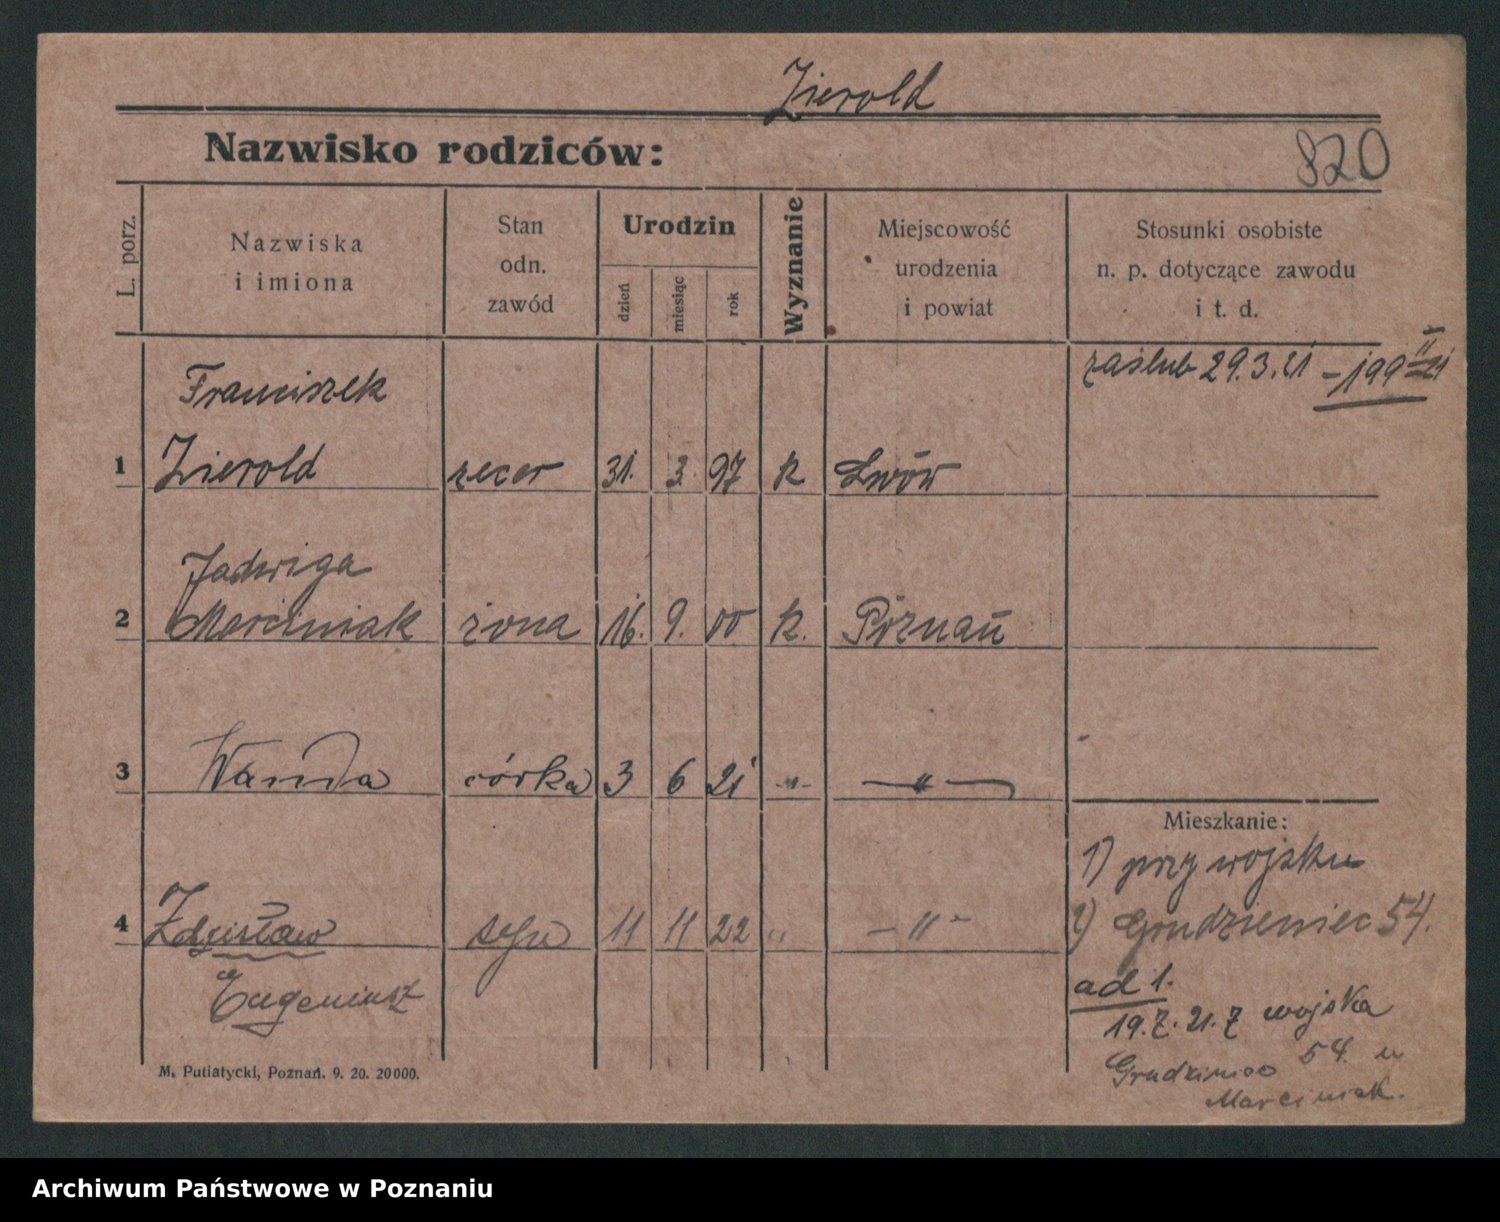 Zierold
Nazwisko rodziców:
820
L. porz.
Nazwiska
i imiona
Stan
odn.
zawód
Urodzin
dzień
miesiąc
rok
Wyznanie
Miejscowość
urodzenia
i powiat
Stosunki osobiste
n. p. dotyczące zawodu
i t. d.
zaślub 29.3.21 – 199 II 21
Franciszek
1 Zierold zecer 31. 3. 97 k Lwów
Jadwiga
2 Marciniak żona 16. 9. 00 k. Poznań
3 Wanda córka 3 6 21 -"- -"-
Mieszkanie:
1) przy wojsku
4 Zdzisław syn 11 11 22 " -"-
Eugeniusz
2) Grudzieniec 54.
ad 1.
19.7.21. z wojska
Grudzieniec 54. u
Marciniak.
M. Putiatycki, Poznań. 9. 20. 20000.
Archiwum Państwowe w Poznaniu